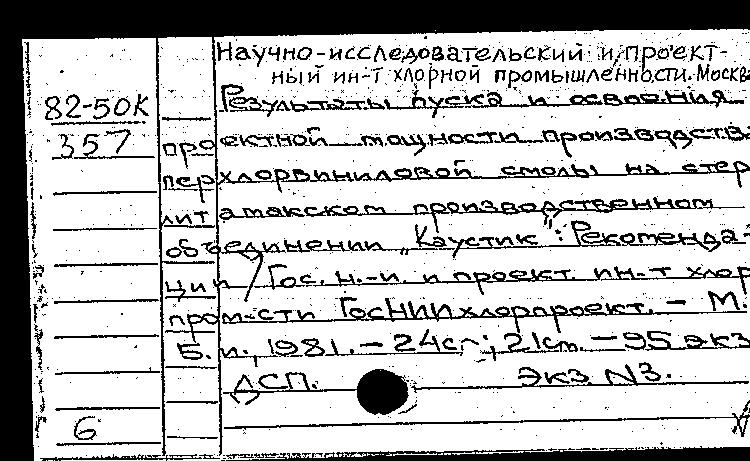 Научно-исследовательский и проект-
ный ин-т хлорной промышленности. Москва
82-50К Результаты пуска и освоения
357 проектной мощности производств
перхлорвиниловой смолы на стер
литамакском производственном
объединении "Каустик": Рекоменда-
ции / Гос. н.-и. и проект. ин-т хлор
пром-сти ГосНИИхлорпроект. - М.
Б. и., 1981. - 24с.; 21см. - 95 экз
ДСП. Экз N3.
6